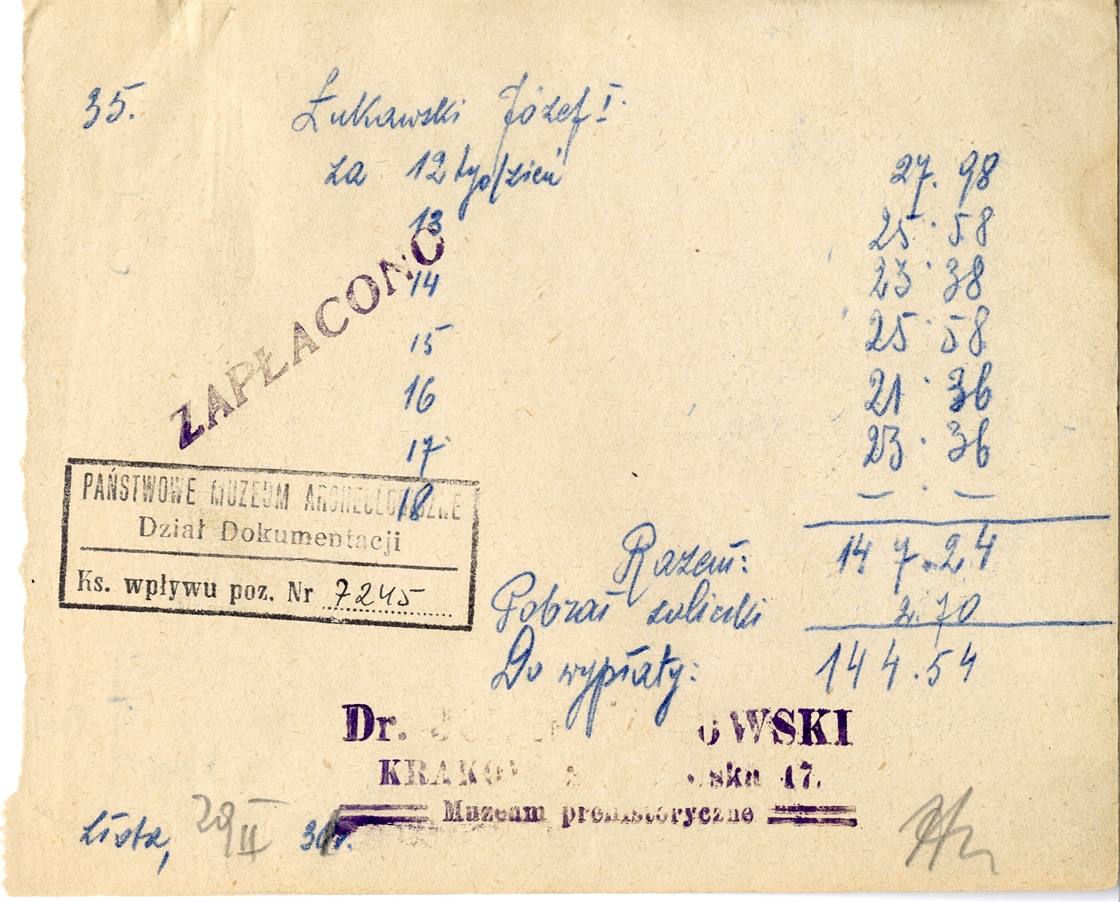 35. Łukawski Józef I.
za 12 tydzień 27.98
13 25.58
14 23.38
15 25.58
16 21.36
17 23.36
18 – . –
ZAPŁACONO
PAŃSTWOWE MUZEUM ARCHEOLOGICZNE
Dział Dokumentacji
Ks. wpływu poz. Nr 7245
Razem: 147.24
Pobrał zaliczki 2.70
Do wypłaty: 144.54
Dr. OWSKI
KRAKÓW 17.
Muzeum prehistoryczne
Lista, 29 II